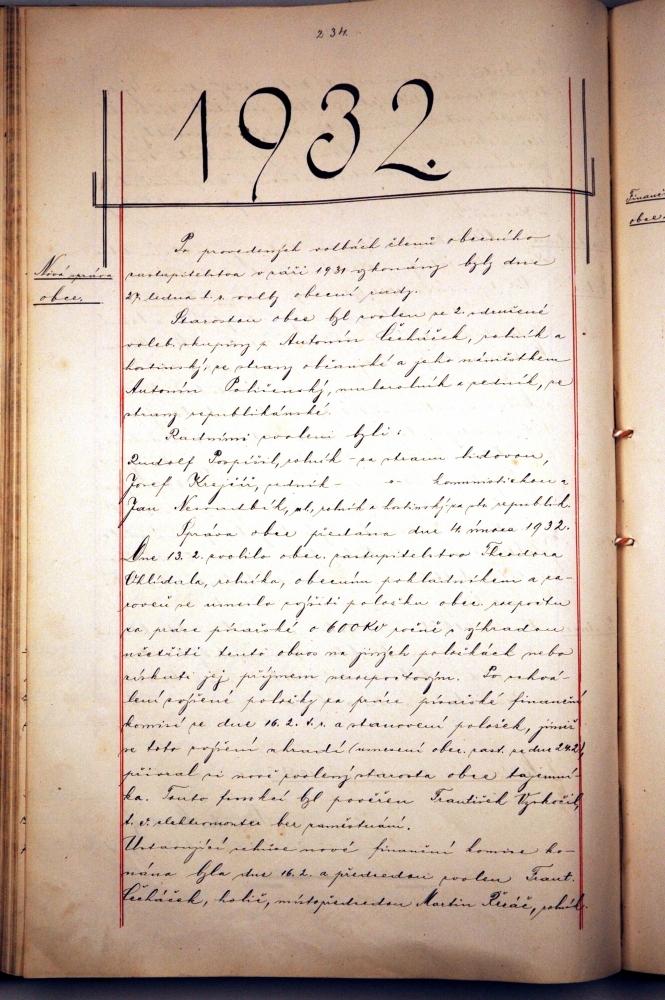 234.
1932.
Nová správa
obce.
Finanč
obce.
Po provedených volbách členů obecního
zastupitelstva v září 1931 vykonány byly dne
27. ledna t. r. volby obecní rady.
Starostou obce byl zvolen ze 2. sdružené
voleb. skupiny p. Antonín Čecháček, rolník a
hostinský, ze strany občanské a jeho náměstkem
Antonín Polišenský, malorolník a zedník, ze
strany republikánské.
Radními zvoleni byli:
Rudolf Pospíšil, rolník – za stranu lidovou,
Josef Krejčí, zedník – " – komunistickou a
Jan, rolník a hostinský za str. republik.
Správa obce předána dne 4. února 1932.
Dne 13. 2. zvolilo obec. zastupitelstvo Theodora
Ohlídala, rolníka, obecním pokladníkem a zá-
roveň se usneslo zvýšiti položku obec. rozpočtu
za práce písařské o 600 Kč ročně s výhradou
ušetřiti tento obnos na jiných položkách nebo
získati jej příjmem nerozpočtovým. Po schvá-
lení zvýšené položky za práce písařské finanční
komisí ze dne 16. 2. t. r. a stanovení položek, jimiž
se toto zvýšení uhradí (usnesení obec. zast. ze dne 24. 2.),
přibral si nově zvolený starosta obce tajemní-
ka. Touto funkcí byl pověřen František Vyskočil,
t. č. elektromontér bez zaměstnání.
Ustavující schůze nové finanční komise ko-
nána byla dne 16. 2. a předsedou zvolen Frant.
Čecháček, holič, místopředsedou Martin Řezáč, rolník.